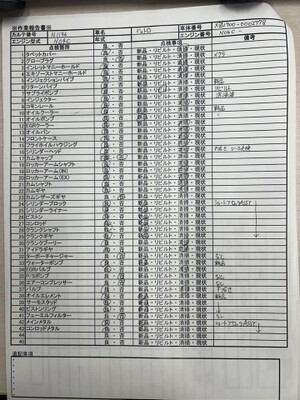 ※作業報告書※
カルテ番号 車名 車体番号 XZU700-0002778
エンジン型式 N04C 年式 エンジン番号 N04C-
点検箇所 良・否 点検事項 備考
1 タペットカバー 良・否 新品・リビルト・清掃・現状
2 グロープラグ 良・否 新品・リビルト・清掃・現状
3 インレットマニーホールド 良・否 新品・リビルト・清掃・現状
4 エキゾーストマニーホールド 良・否 新品・リビルト・清掃・現状
5 インジェクションパイプ 良・否 新品・リビルト・清掃・現状 新品
6 リターンパイプ 良・否 新品・リビルト・清掃・現状
7 サプライポンプ 良・否 新品・リビルト・清掃・現状 リビルト
8 インジェクター 良・否 新品・リビルト・清掃・現状
9 コモンレール 良・否 新品・リビルト・清掃・現状
10 オイルクーラー 良・否 新品・リビルト・清掃・現状 新品
11 オイルポンプ 良・否 新品・リビルト・清掃・現状
12 EGRクーラー 良・否 新品・リビルト・清掃・現状
13 オイルパン 良・否 新品・リビルト・清掃・現状
14 フロントケース 良・否 新品・リビルト・清掃・現状
15 フライホイルハウジング 良・否 新品・リビルト・清掃・現状
16 シリンダーヘッド 良・否 新品・リビルト・清掃・現状
17 カムキャップ 良・否 新品・リビルト・清掃・現状
18 ロッカーアームシャフト 良・否 新品・リビルト・清掃・現状
19 ロッカーアーム(IN) 良・否 新品・リビルト・清掃・現状
20 ロッカーアーム(EX) 良・否 新品・リビルト・清掃・現状
21 カムシャフト 良・否 新品・リビルト・清掃・現状
22 カムギヤ 良・否 新品・リビルト・清掃・現状
23 カムシザーズギヤ 良・否 新品・リビルト・清掃・現状
24 シリンダーブロック 良・否 新品・リビルト・清掃・現状 ショートブロックASSY
25 シリンダーライナー 良・否 新品・リビルト・清掃・現状
26 ピストン 良・否 新品・リビルト・清掃・現状
27 コンロッド 良・否 新品・リビルト・清掃・現状
28 クランクシャフト 良・否 新品・リビルト・清掃・現状
29 クランクギヤ 良・否 新品・リビルト・清掃・現状
30 クランクプーリー 良・否 新品・リビルト・清掃・現状
31 アイドラギヤ 良・否 新品・リビルト・清掃・現状
32 ターボーチャージャー 良・否 新品・リビルト・清掃・現状
33 ウォーターポンプ 良・否 新品・リビルト・清掃・現状 新品
34 EGRバルブ 良・否 新品・リビルト・清掃・現状
35 P/Sポンプ 良・否 新品・リビルト・清掃・現状
36 エアーコンプレッサー 良・否 新品・リビルト・清掃・現状
37 バルブ 良・否 新品・リビルト・清掃・現状
38 オイルエレメント 良・否 新品・リビルト・清掃・現状 新品
39 サーモスタッド 良・否 新品・リビルト・清掃・現状
40 ピストンリング 良・否 新品・リビルト・清掃・現状
41 フューエルフィルター 良・否 新品・リビルト・清掃・現状
42 メインメタル 良・否 新品・リビルト・清掃・現状 ショートブロックASSY
43 コンロッドメタル 良・否 新品・リビルト・清掃・現状
44 良・否 新品・リビルト・清掃・現状
45 良・否 新品・リビルト・清掃・現状
追記事項